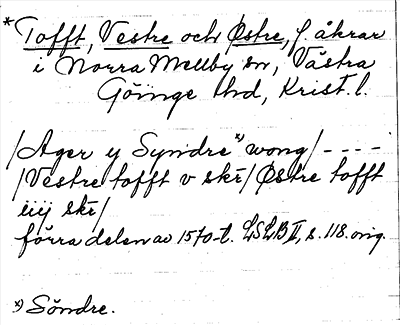 *Tofft, Vestre och Østre, f. åkrar
i Norra Mellby sn, Västra
Göinge hd, Krist. l.
/Ager y Syndre *) wong/ - - - -
/Vestre tofft v skr/ Østre tofft
iiij skr/
förra delen av 1570-t. LSLB II, s. 118. orig.
*) Söndre.